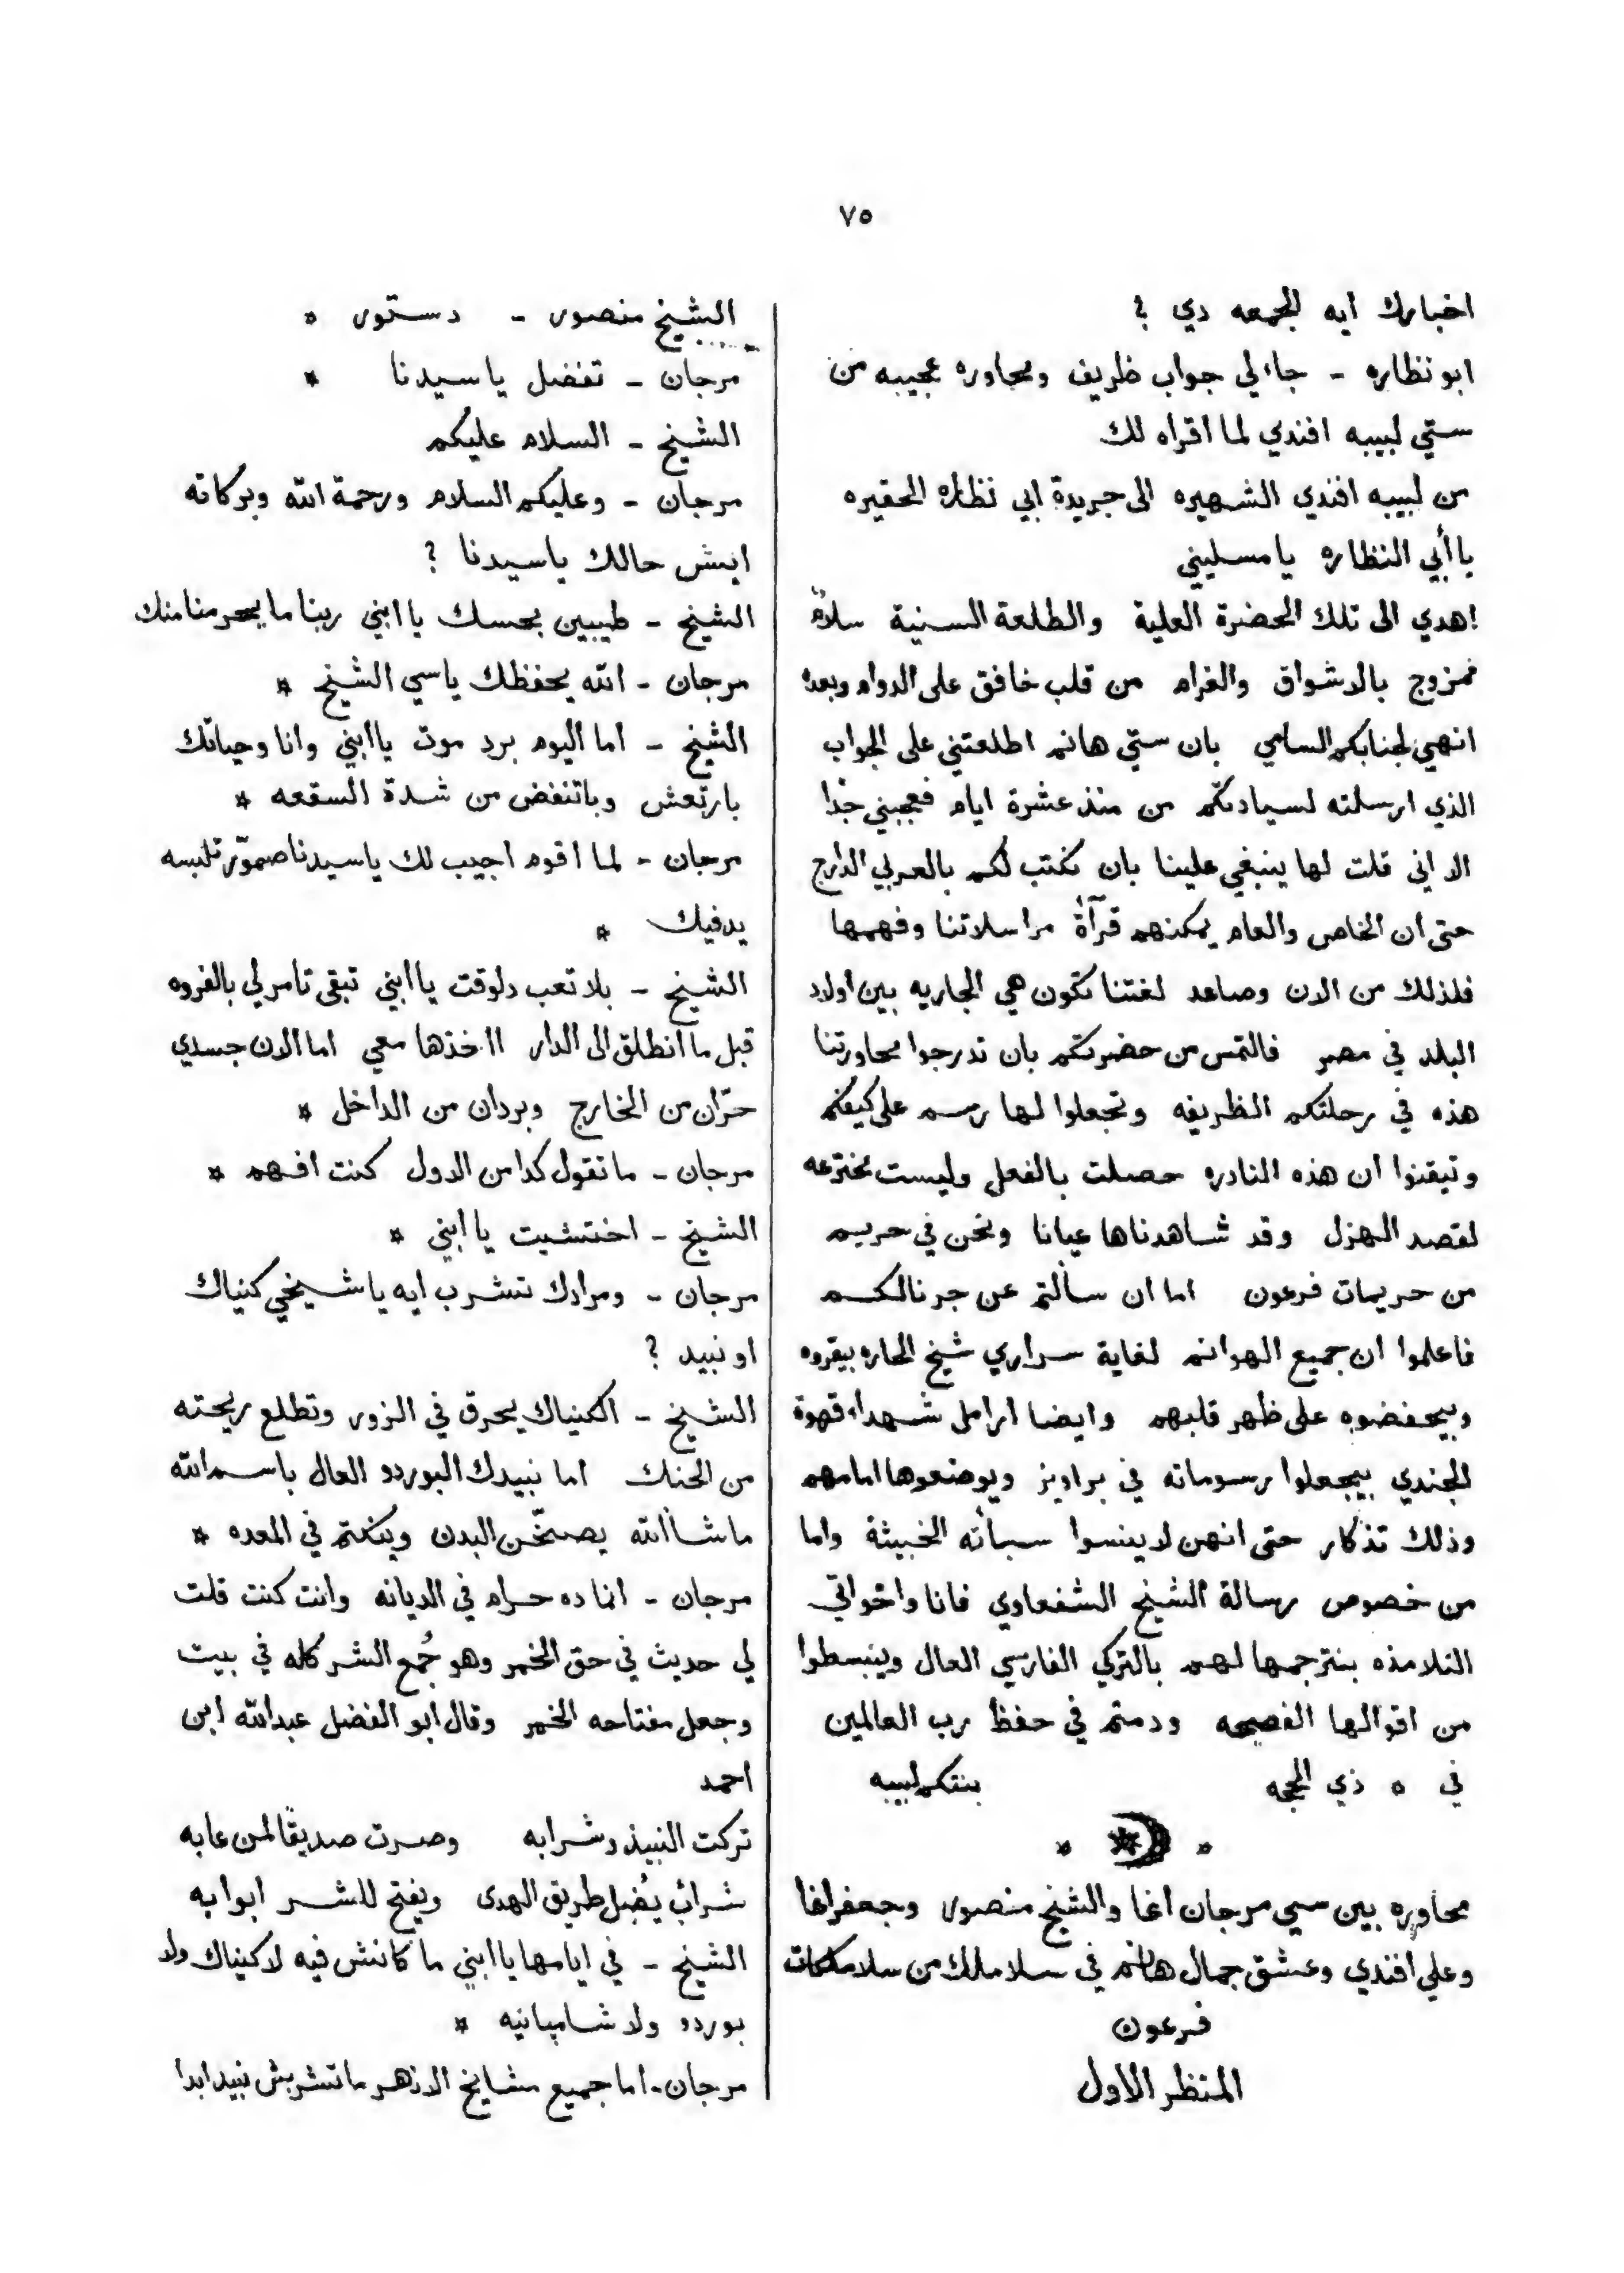 ٧٥
اخبارك ايه الجمعه دي ؟
ابو نظاره - جاء لي جواب ظريف ومحاوره عجيبه من
ستي لبيبه افندي لما اقراه لك
من لبيبه افندي الشهيره الى جريدة ابي نظاره الحقيره
يا أبي النظاره يا مسليني
اهدي الى تلك الحضرة العلية والطلعة السنية سلاماً
ممزوج بالاشواق والغرام من قلب خافق على الدوام وبعده
انهي لجنابكم السامي بان ستي هانم اطلعتني على الجواب
الذي ارسلته لسيادتكم من منذ عشرة ايام فعجبني جداً
الا اني قلت لها ينبغي علينا بان نكتب لكم بالعربي الدارج
حتى ان الخاص والعام يمكنهم قرآة مراسلاتنا وفهمها
فلذلك من الان وصاعد لغتنا تكون هي الجاريه بين اولاد
البلد في مصر فالتمس من حضرتكم بان تدرجوا محاورتنا
هذه في رحلتكم الظريفه وتجعلوا لها رسم على كيفكم
وتيقنوا ان هذه النادره حصلت بالفعل وليست مخترعه
لقصد الهزل وقد شاهدناها عيانا ونحن في حريم
من حريمات فرعون اما ان سألتم عن جرنالكم
فاعلموا ان جميع الهوانم لغاية سراري شيخ الحاره بيقروه
وبيحفضوه على ظهر قلبهم وايضا ارامل شهداء قهوة
الجندي بيجعلوا رسوماته في براويز ويوضعوها امامهم
وذلك تذكار حتى انهن لا ينسوا سيأته الخبيثة واما
من خصوص رسالة الشيخ الشفعاوي فانا واخواتي
التلامذه بنترجمها لهم بالتركي الفارسي العال وينبسطوا
من اقوالها الفصيحه ودمتم في حفظ رب العالمين
في ٥ ذي الحجه بنتكم لبيبه
* *
محاوره بين سي مرجان اغا والشيخ منصور وجعفر اغا
وعلي افندي وعشق جمال هانم في سلاملك من سلاملكات
فرعون
المنظر الاول
الشيخ منصور - دستور *
مرجان - تفضل يا سيدنا *
الشيخ - السلام عليكم
مرجان - وعليكم السلام ورحمة الله وبركاته
ايش حالك يا سيدنا ؟
الشيخ - طيبين بحسك يا ابني ربنا ما يحرمنا منك
مرجان - الله يحفظك يا سي الشيخ *
الشيخ - اما اليوم برد موت يا ابني وانا وحياتك
بارتعش وباتنفض من شدة السقعه *
مرجان - لما اقوم اجيب لك يا سيدنا صمور تلبسه
يدفيك *
الشيخ - بلا تعب دلوقت يا ابني تبقى تامر لي بالفروه
قبل ما انطلق الى الدار ااخذها معي اما الان جسدي
حرّان من الخارج وبردان من الداخل *
مرجان - ما تقول كدا من الاول كنت افهم *
الشيخ - اختشيت يا ابني *
مرجان - ومرادك تشرب ايه يا شيخي كنياك
او نبيد ؟
الشيخ - الكنياك يحرق في الزور وتطلع ريحته
من الحنك اما نبيدك البوردو العال باسم الله
ما شاالله يصخّن البدن وينكتم في المعده *
مرجان - انما ده حرام في الديانه وانت كنت قلت
لي حديث في حق الخمر وهو جُمع الشر كله في بيت
وجعل مفتاحه الخمر وقال ابو الفضل عبدالله ابن
احمد
تركت النبيذ وشرابه وصرت صديقًا لمن عابه
شرابٌ يُضِل طريق الهدى ويفتح للشر ابوابه
الشيخ - في ايامها يا ابني ما كانش فيه لا كنياك ولا
بوردو ولا شامبانيه *
مرجان - اما جميع مشايخ الازهر ما تشربش نبيد ابدا